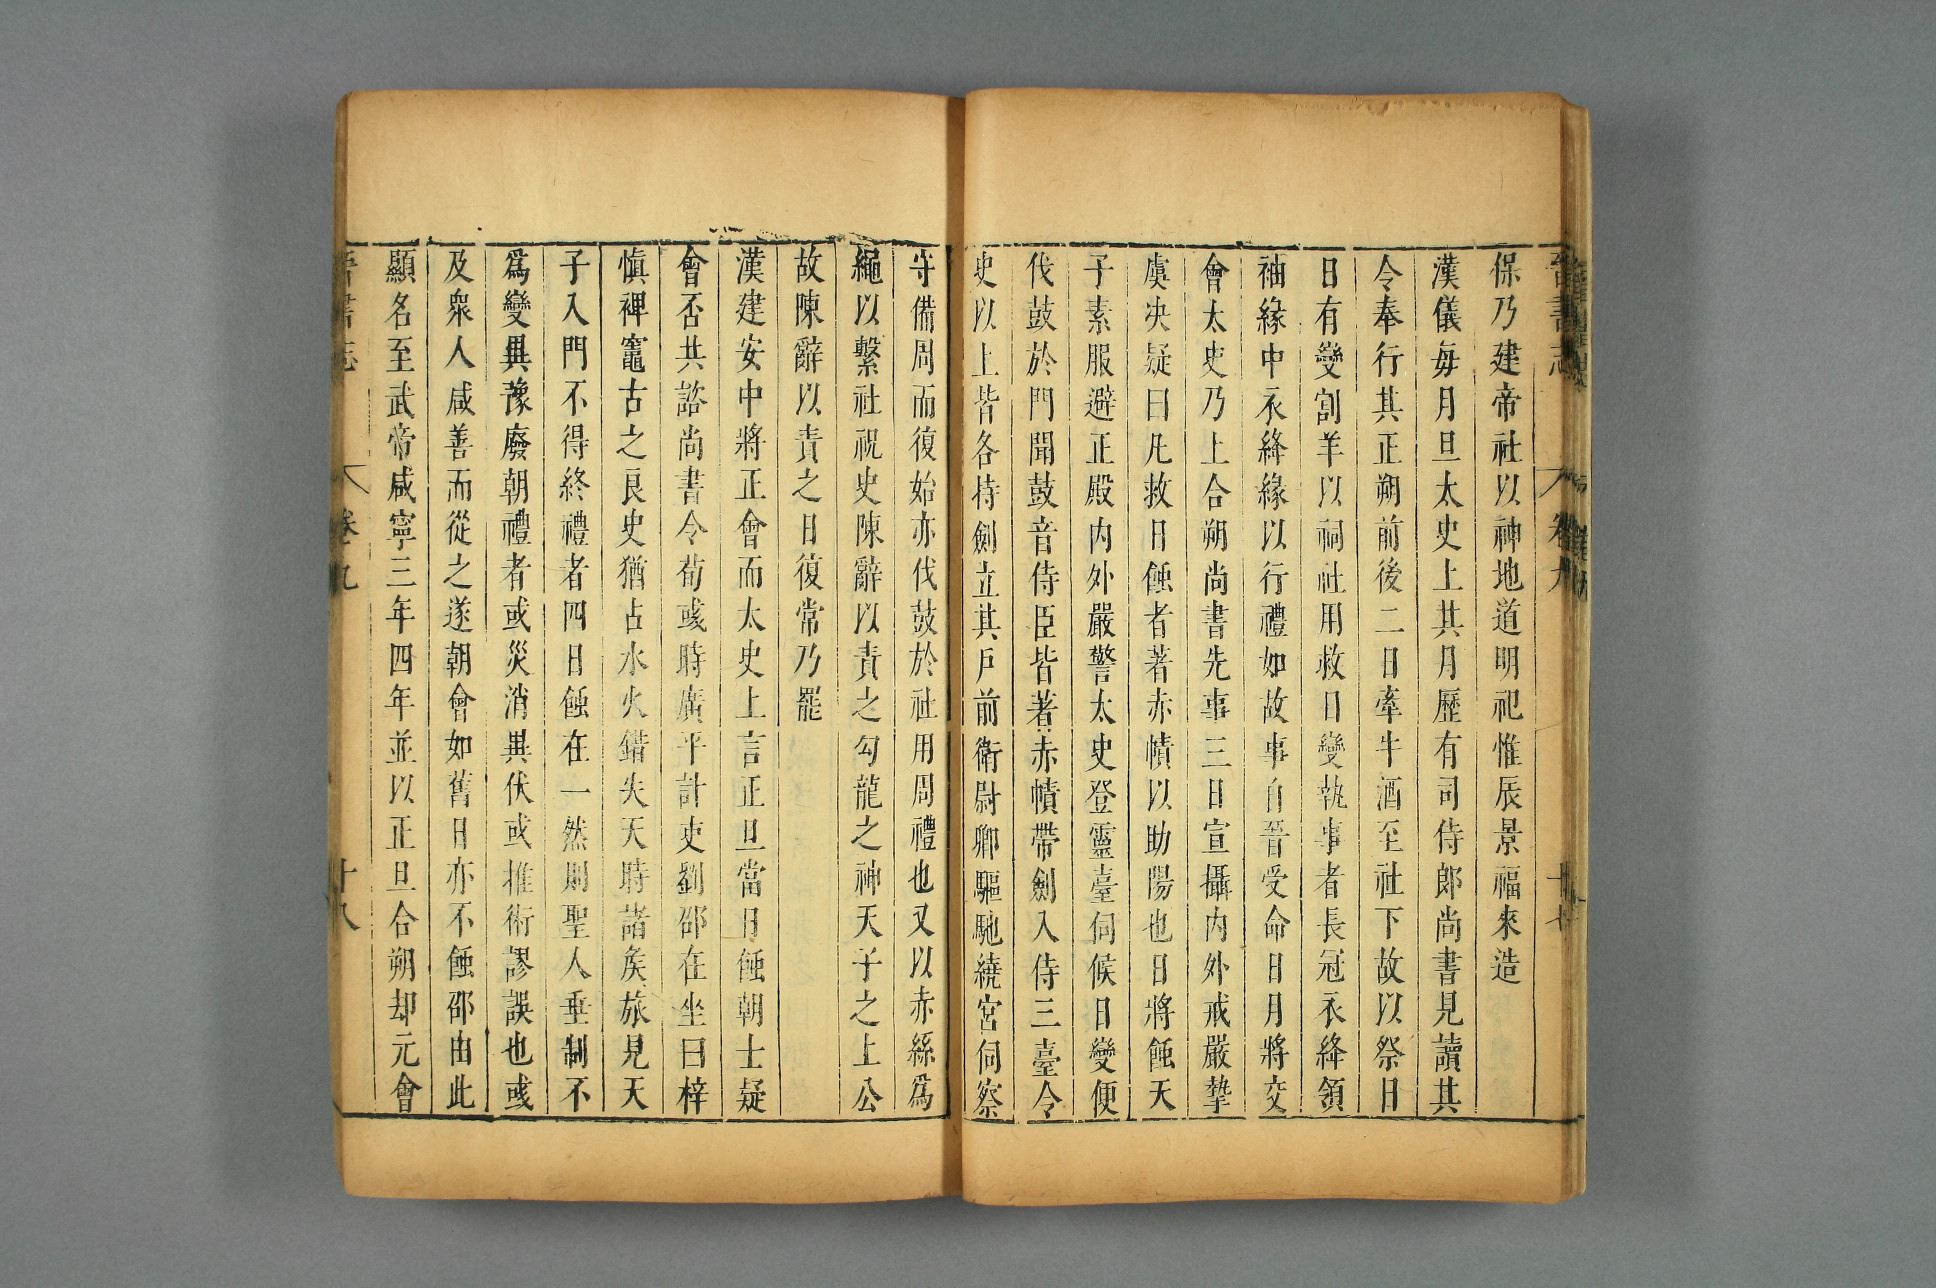 晉書志 卷九 十七
保乃建帝社以神地道明祀惟辰景福來造
漢儀每月旦太史上其月歷有司侍郎尚書見讀其
令奉行其正朔前後二日牽牛酒至社下故以祭日
日有變割羊以祠社用救日變執事者長冠衣絳領
袖緣中衣絳緣以行禮如故事自晉受命日月將交
會太史乃上合朔尚書先事三日宣攝內外戒嚴摯
虞決疑曰凡救日蝕者著赤幘以助陽也日將蝕天
子素服避正殿內外嚴警太史登靈臺伺候日變便
伐鼓於門聞鼓音侍臣皆著赤幘帶劍入侍三臺令
史以上皆各持劍立其戶前衛尉卿驅馳繞宮伺察
守備周而復始亦伐鼓於社用周禮也又以赤絲爲
繩以繫社祝史陳辭以責之勾龍之神天子之上公
故陳辭以責之日復常乃罷
漢建安中將正會而太史上言正旦當日蝕朝士疑
會否共諮尚書令荀彧時廣平計吏劉邵在坐曰梓
慎裨竈古之良史猶占水火錯失天時諸矦旅見天
子入門不得終禮者四日蝕在一然則聖人垂制不
爲變異豫廢朝禮者或災消異伏或推術謬誤也彧
及衆人咸善而從之遂朝會如舊日亦不蝕邵由此
顯名至武帝咸寧三年四年並以正旦合朔却元會
晉書志 卷九 十八